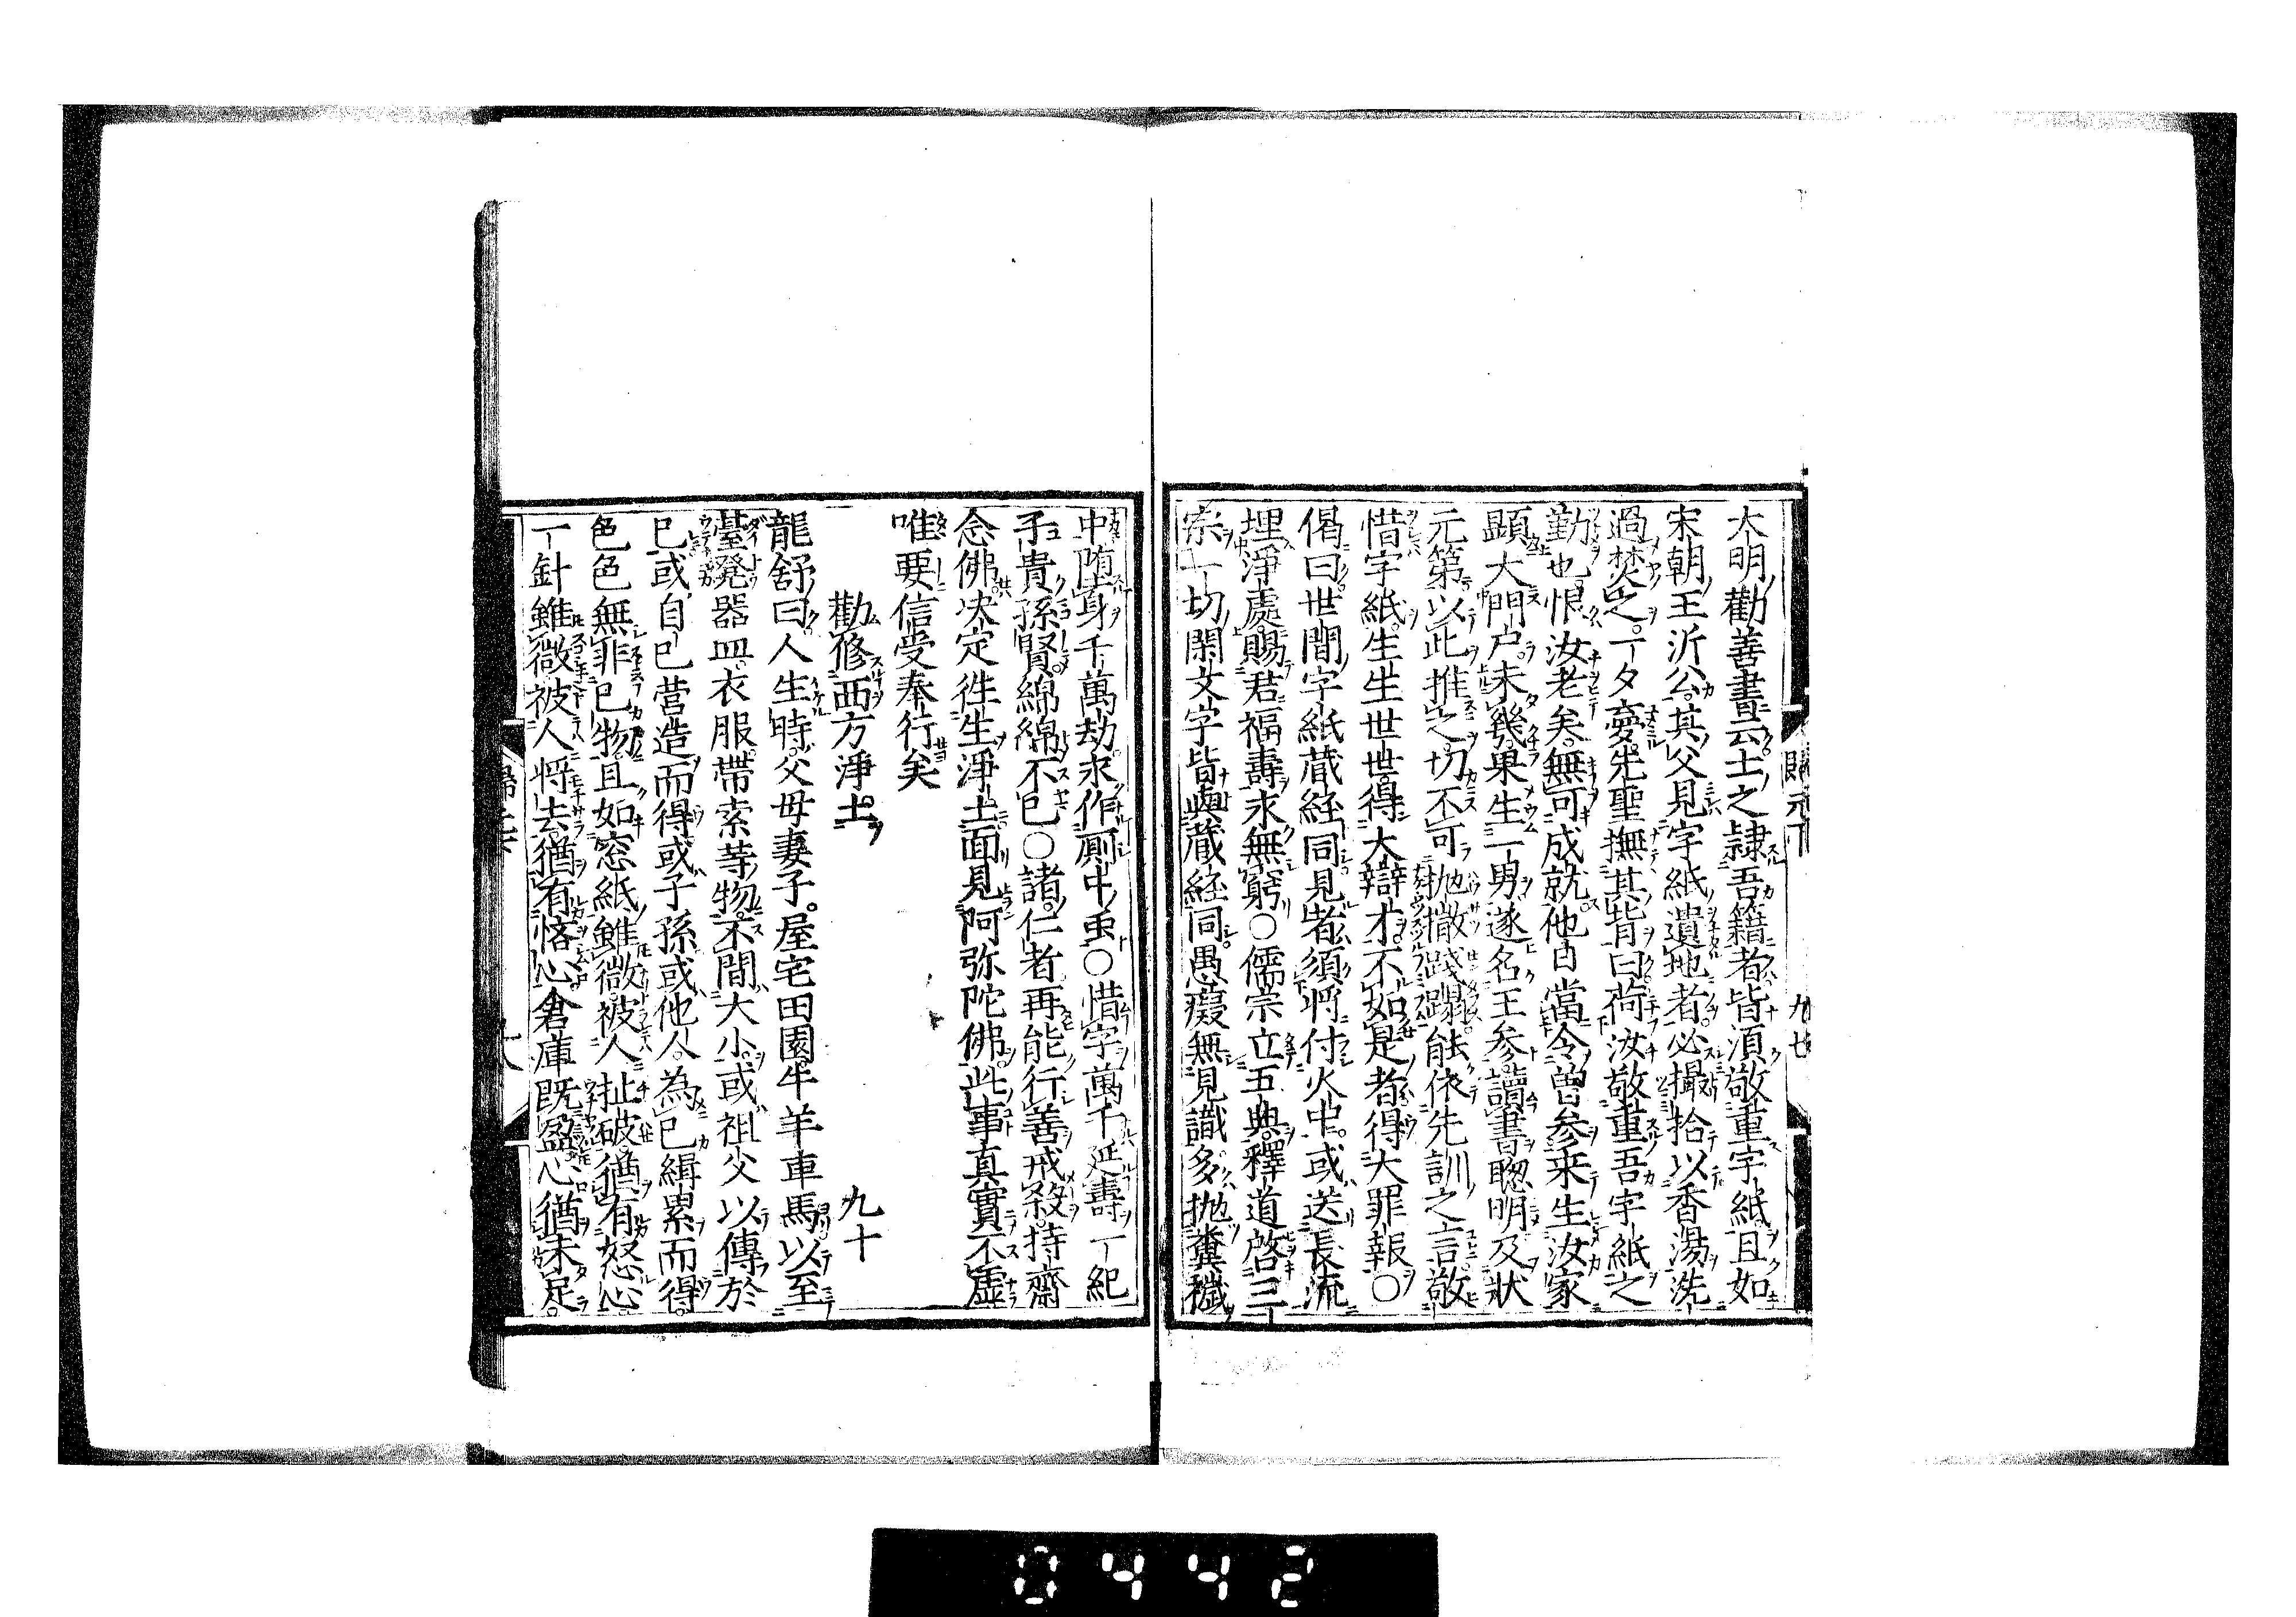 大明勸善書云士之隷吾籍者皆須敬重字紙且如
宋朝王沂公其父見字紙遺地者必撮拾以香湯洗
過焚之一夕夢先聖撫其背曰荷汝敬重吾字紙之
勤也恨汝老矣無可成就他日當令曽参来生汝家
顕大門户未幾果生一男遂名王参讀書聰明及狀
元第以此推之切不可抛撒踐蹋能依先訓之言敬
惜字紙生生世世得大辯才不如是者得大罪報○
偈曰世間字紙蔵経同見者須將付火中或送長流
埋淨處賜君福壽永無窮○儒宗立五典釋道啓三
宗一切閑文字皆與蔵経同愚癡無見識多抛糞穢
中堕身千萬劫永作厠中虫○惜字萬千延壽一紀
子貴孫賢綿綿不已○諸仁者再能行善戒殺持齋
念佛决定徃生淨土面見阿弥陀佛此事真實不虚
唯要信受奉行矣
勸修西方淨土 九十
龍舒曰人生時父母妻子屋宅田園牛羊車馬以至
䑓凳器皿衣服帶索等物不間大小或祖父以傳於
已或自已营造而得或子孫或他人為已緝累而得
色色無非已物且如窓紙雖微被人扯破猶有怒心
一針雖微被人將去猶有悋心倉庫既盈心猶未足
0442